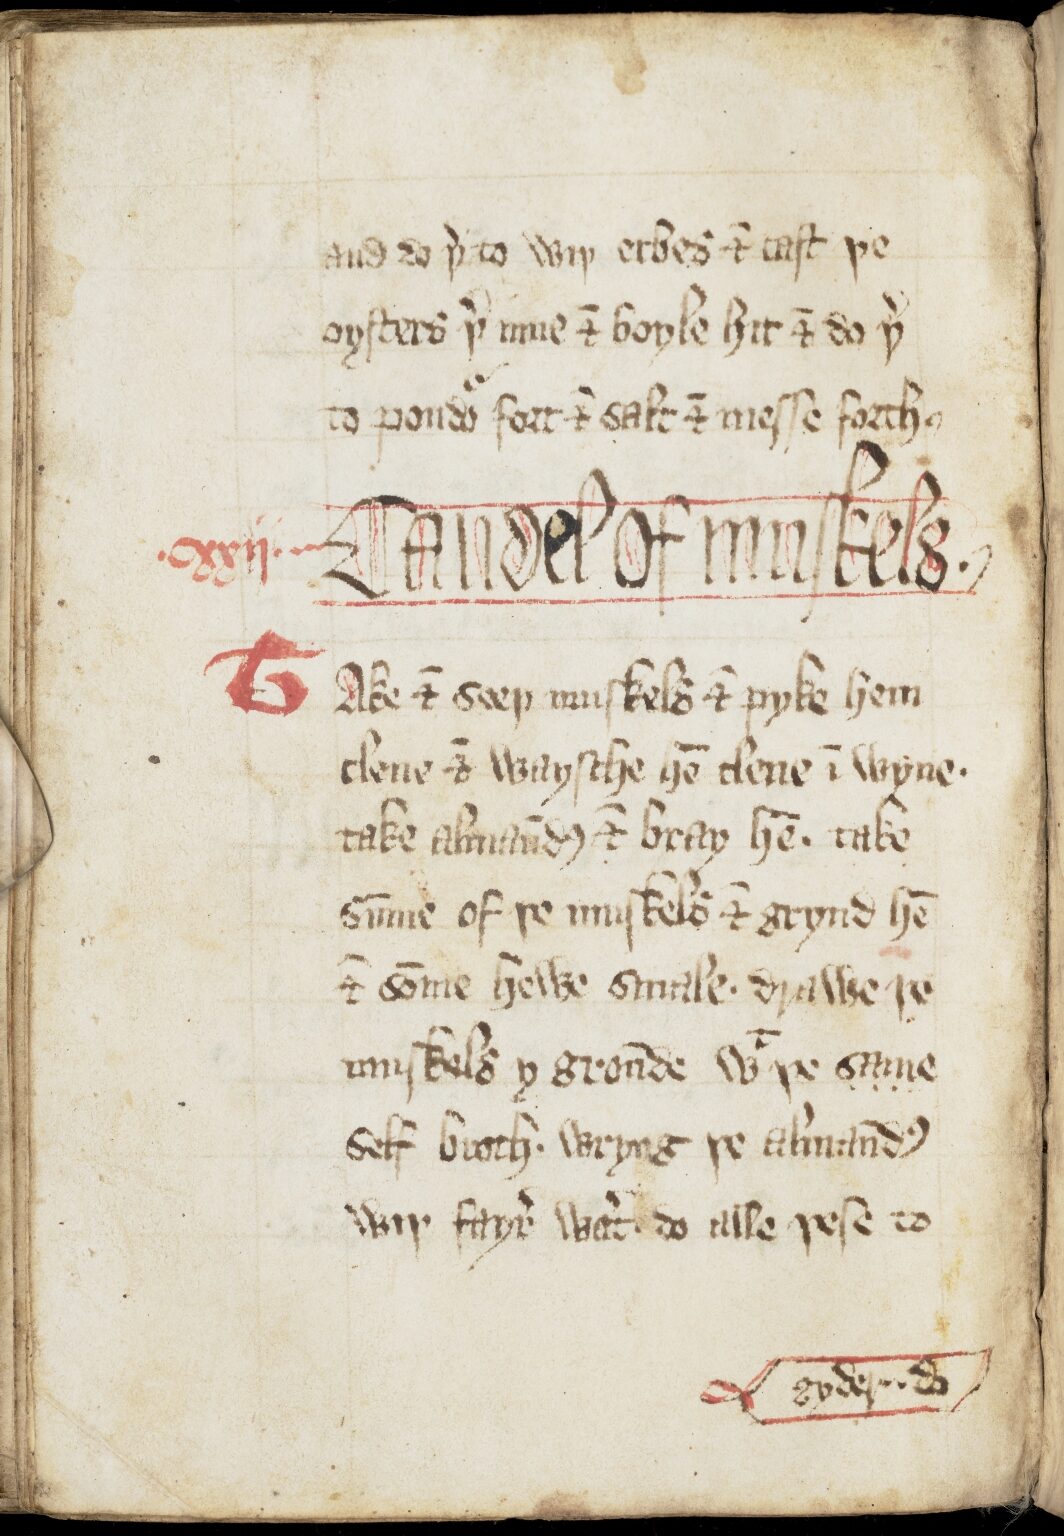 and do þ͛ to wiþ erbes ⁊ cast þe
oysters þ͛ inne ⁊ boyle hit ⁊ do þ͛
to poudo͛ fort ⁊ salt ⁊ messe forth.
.cxxii. Caudel of muskels.
TAke ⁊ seeþ muskels ⁊ pyke hem
clene ⁊ waysche hē clene ī wyne.
take almaūdꝭ ⁊ bray hē. take
sūme of þe muskels ⁊ grynd hē
⁊ sōme hewe smale. drawe þe
muskels y groūde wͭ þe same
self broth. wryng þe almaūdꝭ
wiþ fayr͛ wat͛. do alle þese to
gyder. do